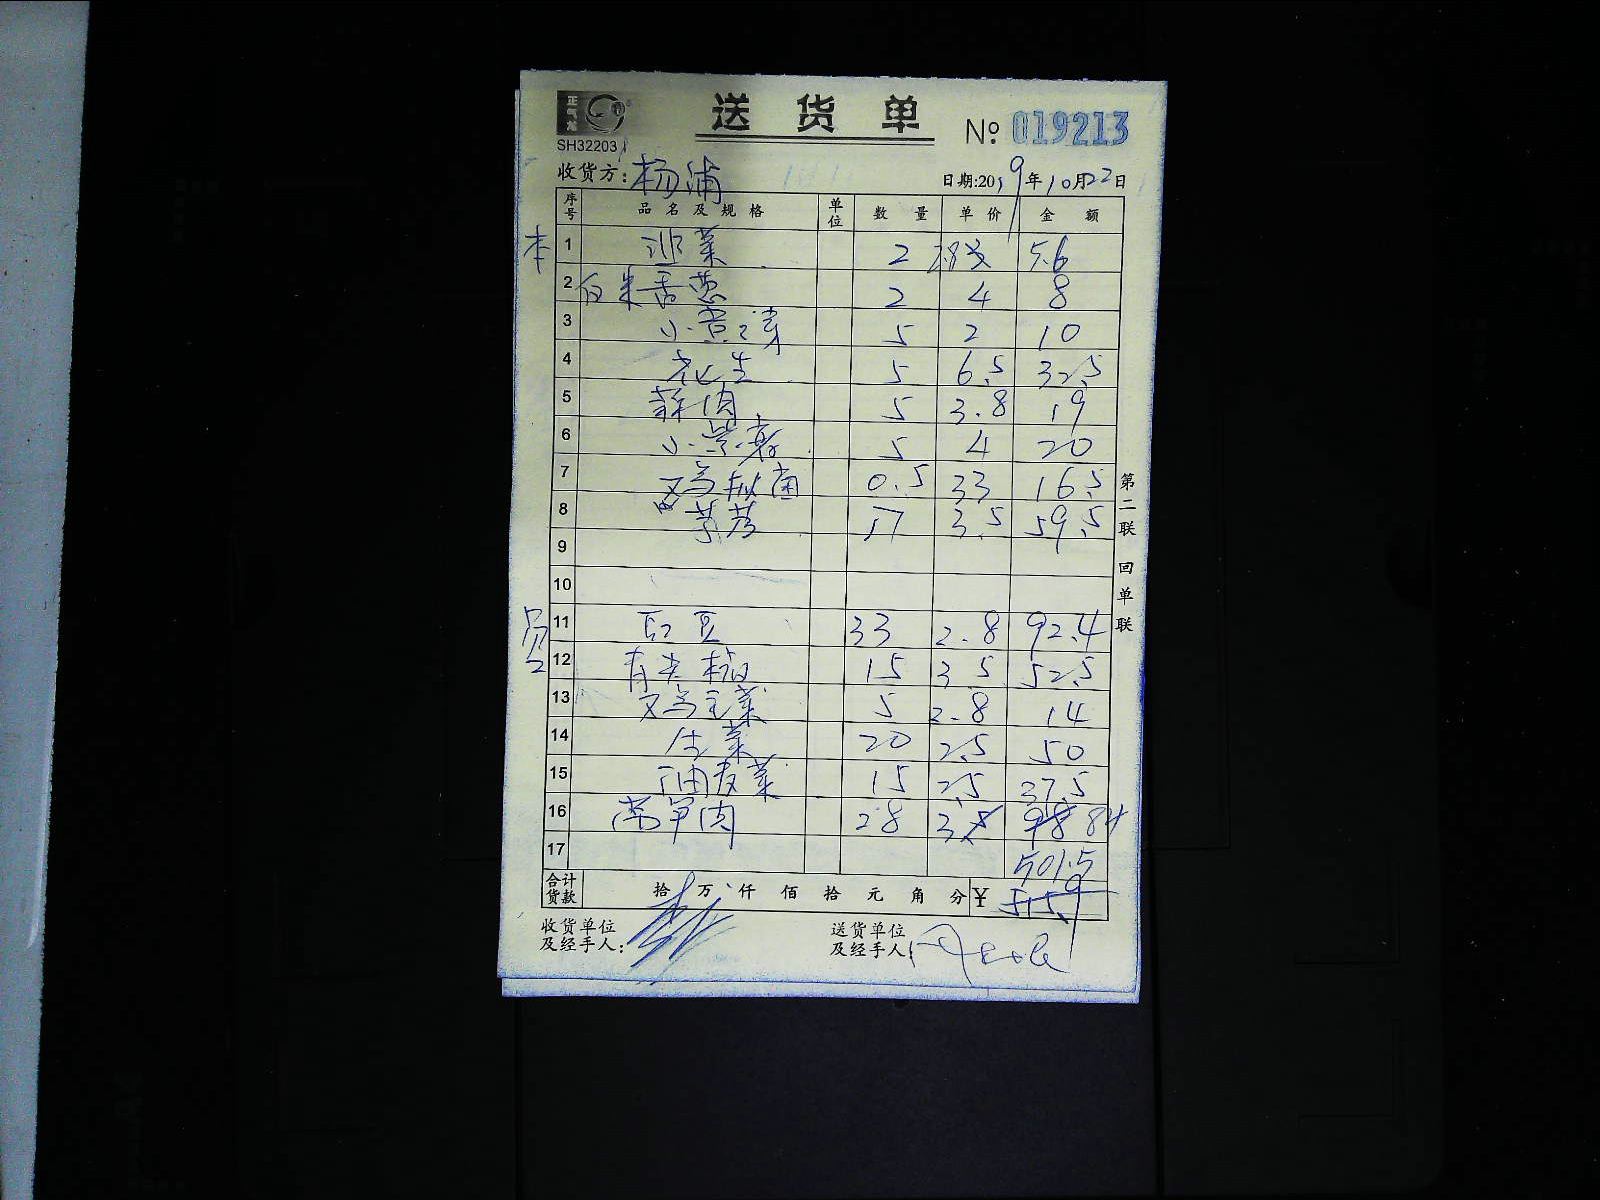 送货单
SH32203
№ 019213
收货方：杨浦
日期:2019年10月22日
序号 品名及规格 单位 数量 单价 金额
本
1 韭菜 2 2.8 5.6
2 白米香葱 2 4 8
3 5 2 10
4 花生 5 6.5 32.5
5 蒜肉 5 3.8 19
6 小米椒 5 4 20
7 0.5 33 16.5
8 17 3.5 59.5
9
10
员
11 豇豆 33 2.8 92.4
12 有尖椒 15 3.5 52.5
13 5 2.8 14
14 生菜 20 2.5 50
15 油麦菜 15 2.5 37.5
16 莴笋肉 28 3 98 84
17 501.5
合计货款 拾 万 仟 佰 拾 元 角 分 ¥ 515.9
收货单位及经手人：
送货单位及经手人：
第二联 回单联